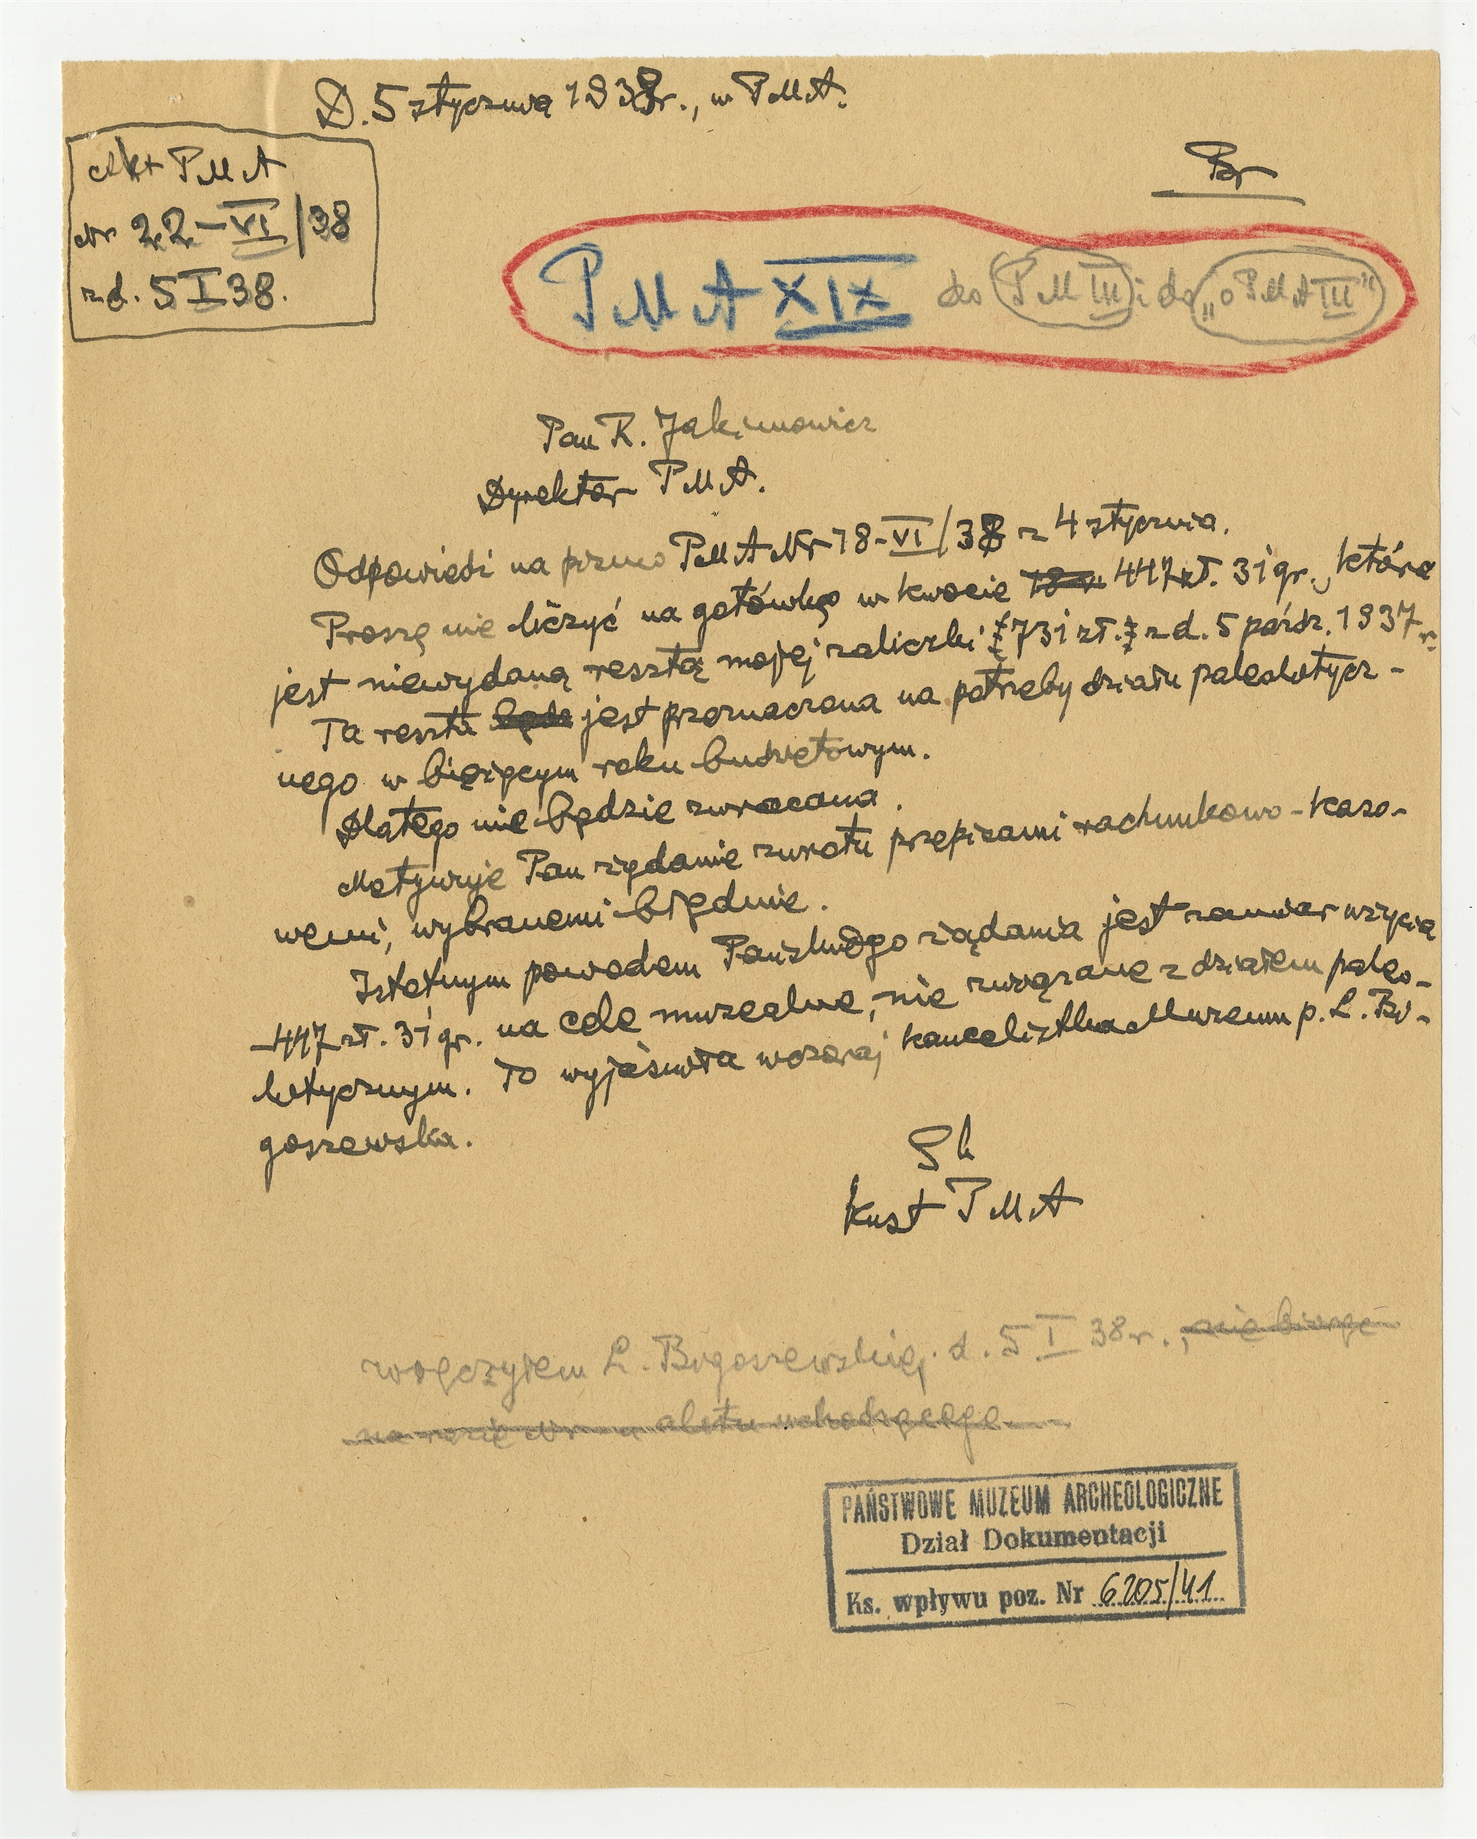 D. 5 stycznia 1938r., w PMA.
Akt PMA
Nr 22-VI/38
z d. 5 I 38.
Br
PMA XIX do PM III i do „o PMA III"
Pan R. Jakimowicz
Dyrektor PMA.
Odpowiedź na pismo PMA Nr 18-VI/38 z 4 stycznia.
Proszę nie liczyć na gotówkę w kwocie 447 zł. 31 gr., która
jest niewydaną resztą mojej zaliczki 731 zł. z d. 5 paźdz. 1937 r.
Ta reszta będz jest przeznaczona na potrzeby działu paleolitycz-
nego w bieżącym roku budżetowym.
Dlatego nie będzie zwracana.
Motywuje Pan żądanie zwrotu przepisami rachunkowo-kaso-
wemi, wybranemi błędnie.
Istotnym powodem Pańskiego żądania jest zamiar użycia
447 zł. 31 gr. na cele muzealne, nie związane z działem paleo-
litycznym. To wyjaśniła wczoraj kancelistka Muzeum p. L. Bi-
goszewska.
Sk
Kust PMA
Wręczyłem L. Bigoszewskiej d. 5 I 38 r., nie biorąc
na razie Nr-u aktu wchodzącego.
PAŃSTWOWE MUZEUM ARCHEOLOGICZNE
Dział Dokumentacji
Ks. wpływu poz. Nr 6205/41